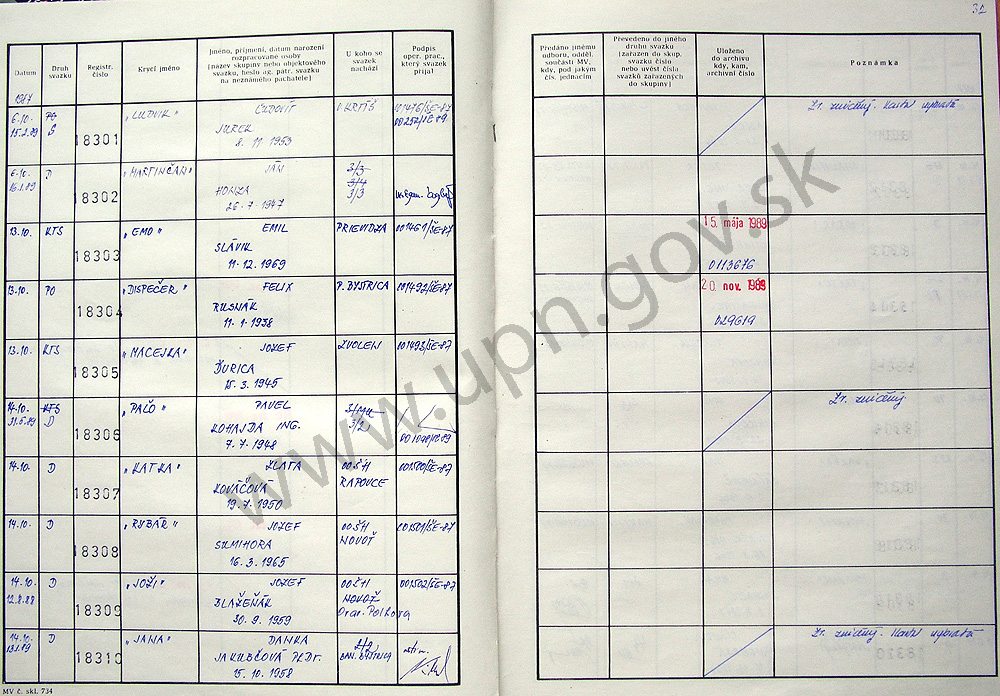 32
Datum
Druh svazku
Registr. číslo
Krycí jméno
Jméno, příjmení, datum narození
rozpracované osoby
[název skupiny nebo objektového
svazku, heslo ag. patr. svazku
na neznámého pachatele]
U koho se
svazek
nachází
Podpis
oper. prac.,
který svazek
přijal
Předáno jinému
odboru, odděl.
součásti MV,
kdy, pod jakým
čís. jednacím
Převedeno do jiného
druhu svazku
[zařazen do skup.
svazku číslo
nebo uvést číslo
svazků zařazených
do skupiny]
Uloženo
do archivu
kdy, kam,
archivní číslo
Poznámka
1987
6.10. 18301 „LUDVIK" ĽUDOVÍT V. KRTÍŠ 001476/ŠE-87
15.2.89 Š JUREK 00252/ŠE-89
8. 11. 1953
Zv. zničený.
6.10. D 18302 „MARTINČAN" JÁN 3/3
16.1.89 HONZA 3/4
26. 7. 1947 3/3
13.10. KTS 18303 „EMO" EMIL PRIEVIDZA 001461/ŠE-87
SLÁVIK
11. 12. 1969
15. mája 1989
0113676
13.10. PO 18304 „DISPEČER" FELIX P. BYSTRICA 001492/ŠE-87
RUSNÁK
11. 1. 1938
20. nov. 1989
029619
13.10. KTS 18305 „MACEJKA" JOZEF ZVOLEN 001493/ŠE-87
ĎURICA
15. 3. 1945
14.10. KTS 18306 „PAĽO" PAVEL
31.5.89 D KOHAJDA ING. 3/2
7. 7. 1948
Zv. zničený.
14.10. D 18307 „KATKA" ZLATA OOŠH 001500/ŠE-87
KOVÁČOVÁ RAPOVCE
19. 7. 1950
14.10. D 18308 „RYBÁR" JOZEF OOŠH 001501/ŠE-87
SUMIHORA NOVOŤ
16. 3. 1965
14.10. D 18309 „JOŽI" JOZEF OOŠH 001502/ŠE-87
12.2.88 BLAŽEŇÁK NOVOŤ
30. 9. 1959 Orav. Polhora
14.10. D 18310 „JANA" DANKA 2/2
JAKUBČOVÁ PhDr. BAN. BYSTRICA
15. 10. 1958
Zv. zničený.
MV č. skl. 734
www.upn.gov.sk